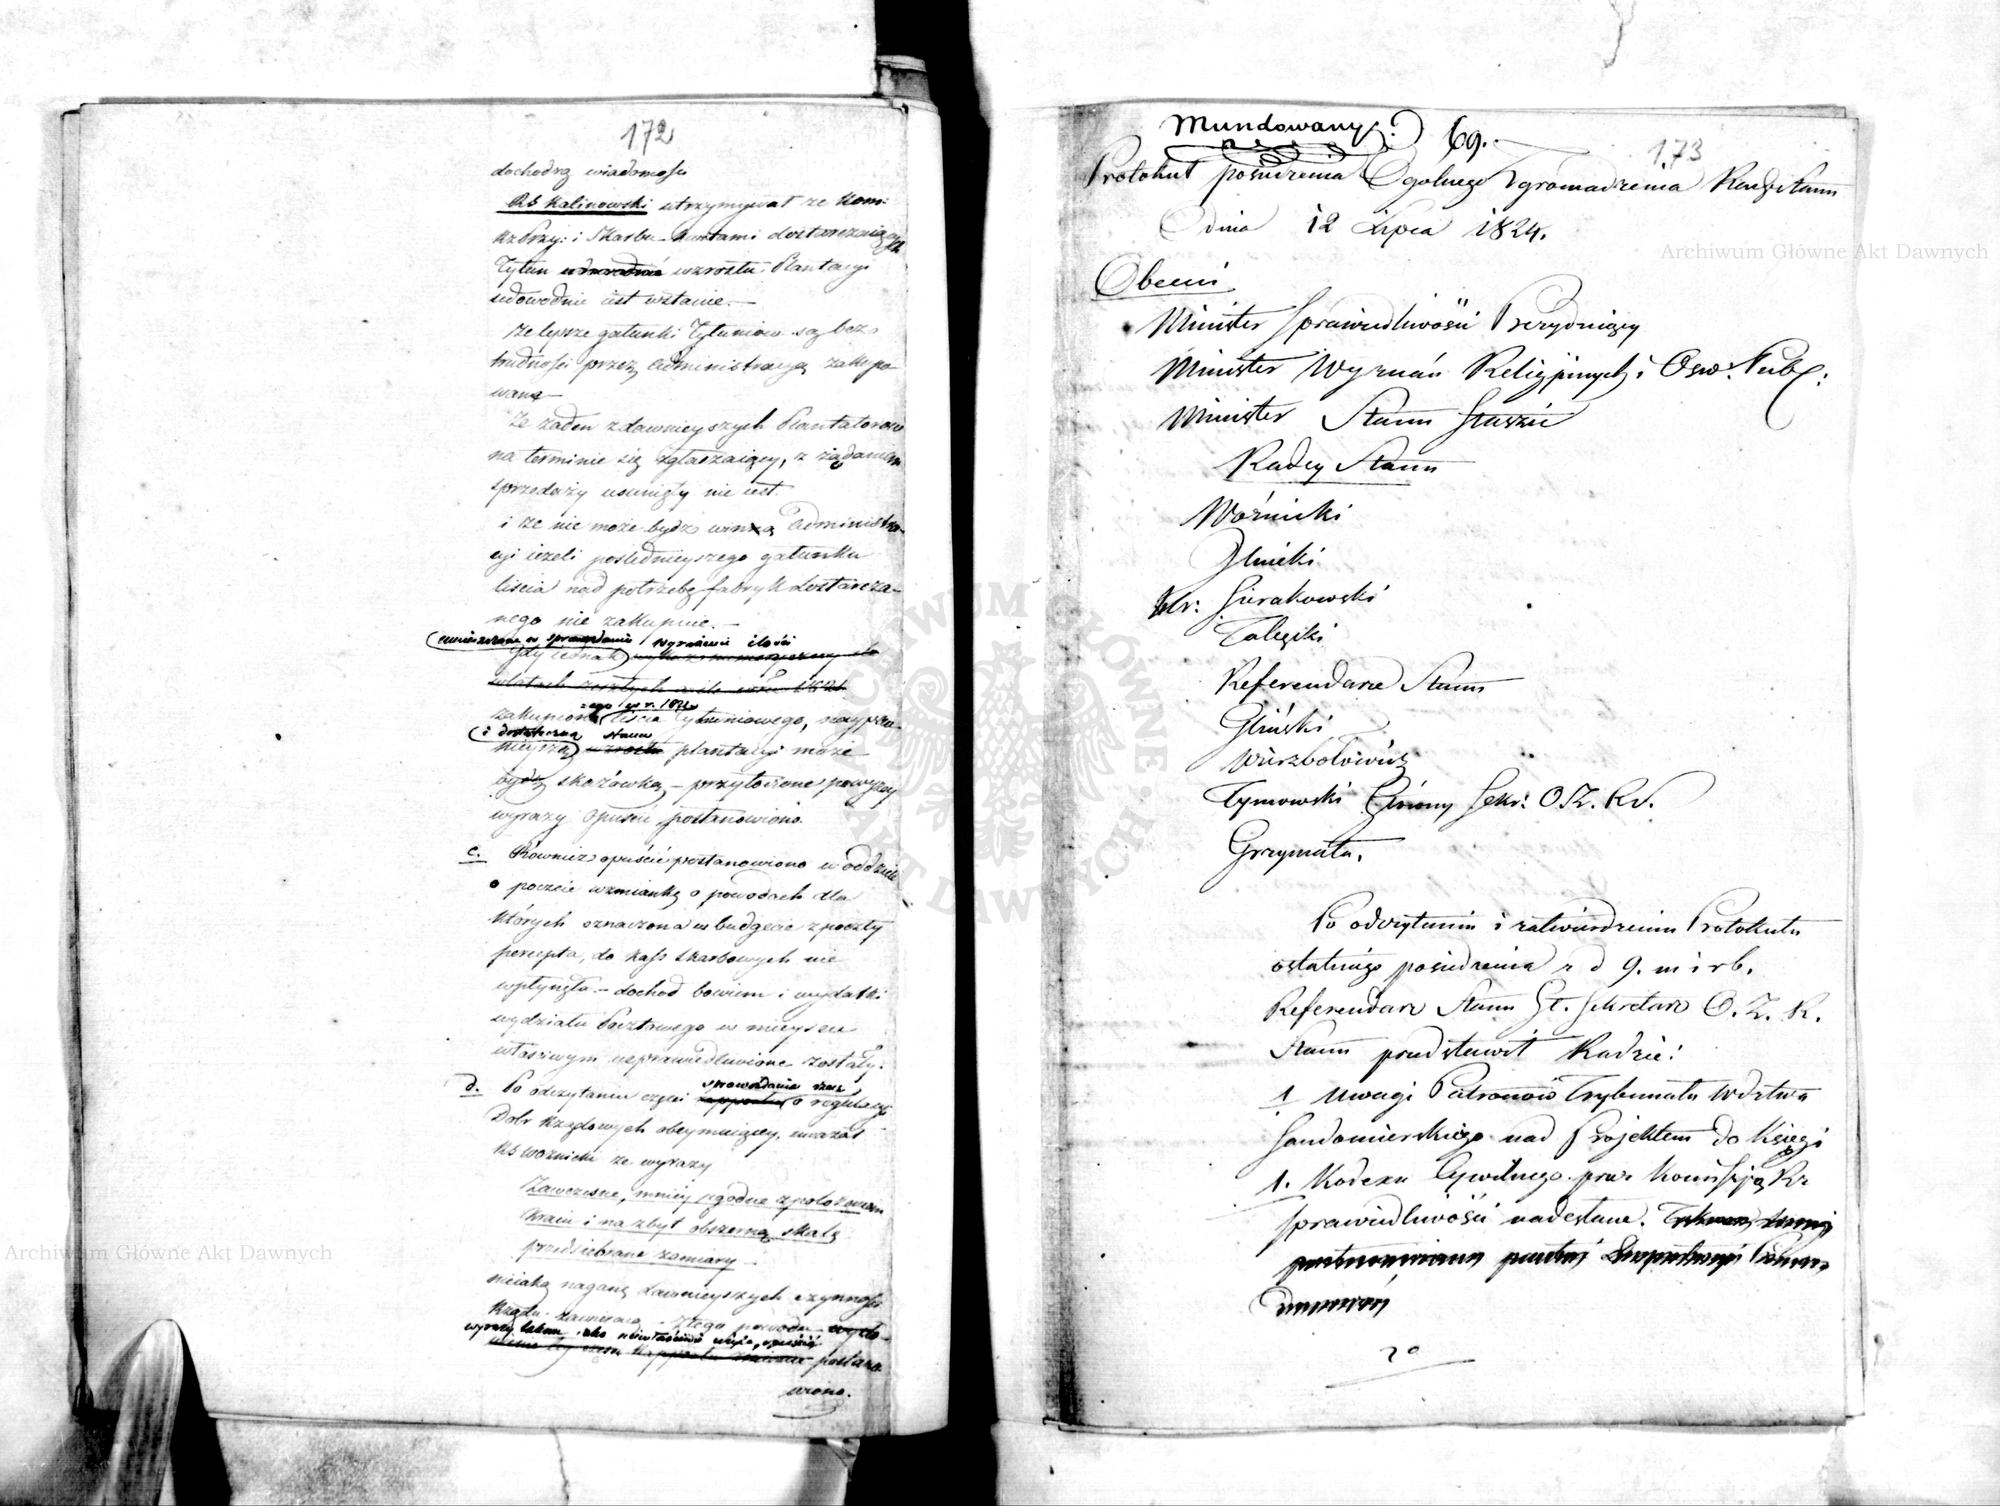 172
dochodzą wiadomości
RS Kalinowski utrzymywał że Kom:
Rz Przy: i Skarbu kwotami dostarczających
Tytun wzrostu Plantacyi
udowodnić iest wstanie. —
że lepsze gatunki Tytuniow są bez
trudności przez administracyą zakupo
wane —
Że żaden z dawnieyszych Plantatorow
na terminie się zgłaszaiący, z żądaniem
sprzedaży usunięty nie iest.
i że nie może bydź winą administra-
cyi ieżeli poslednieyszego gatunku
liścia nad potrzebę fabryk dostarcza-
nego nie zakupuie. —
umieszczone w sprawozdaniu wyrażenie ilości
Gdy iednak
w latach zeszłych
-ego w r. 1823
zakupion liścia Tytuniowego, naypew-
i dostateczną stanu
nieyszą wzrostu plantacyi może
bydź skazówką — przytoczone powyżey
wyrazy opuścić postanowiono.
c. Również opuścić postanowiono w oddziele
o poczcie wzmiankę o powodach dla
których oznaczona w budgecie z poczty
percepta, do kass skarbowych nie
wpłynęła. — dochod bowiem i wydatki
wydziału Pocztowego w mieyscu
właściwym usprawiedliwione zostały.
sprawozdania rzecz
d. Po odczytaniu części o regulacyi
Dobr Rządowych obeymuiącey, uważał
RS Woznicki że wyrazy
Zawczesne, mniey zgodne z położeniem
Kraiu i na zbyt obszerną skalę
przedsiebrane zamiary —
nieiaką naganę dawnieyszych czynności
Rządu zawieraią z tego powodu
wyrazy takowe, iako niewłaściwie użyte, opuścić
postano
wiono.
Mundowany
69.
173
Protokuł posiedzenia Ogolnego Zgromadzenia Rady Stanu
dnia 12 Lipca 1824.
Obecni
Minister Sprawiedliwości Prezyduiący
Minister Wyznań Religijnych i Osw. Publ:
Minister Stanu Staszic
Radcy Stanu
Woźnicki
Gliński
Hr: Sierakowski
Referendarze Stanu
Gliński
Wierzbołowicz
Tymowski Główny Sekr: O.Z. R.S.
Grzymała.
Po odczytaniu i zatwierdzeniu Protokułu
ostatniego posiedzenia z d 9. m i r b.
Referendarz Stanu Gł. Sekretarz O. Z. R.
Stanu przedstawił Radzie:
1 Uwagi Patronów Trybunału Wdztwa
Sandomierskiego nad Projektem do Księgi
1. Kodexu Cywilnego przez Kommissyą Rz
Sprawiedliwości nadesłane.
2º